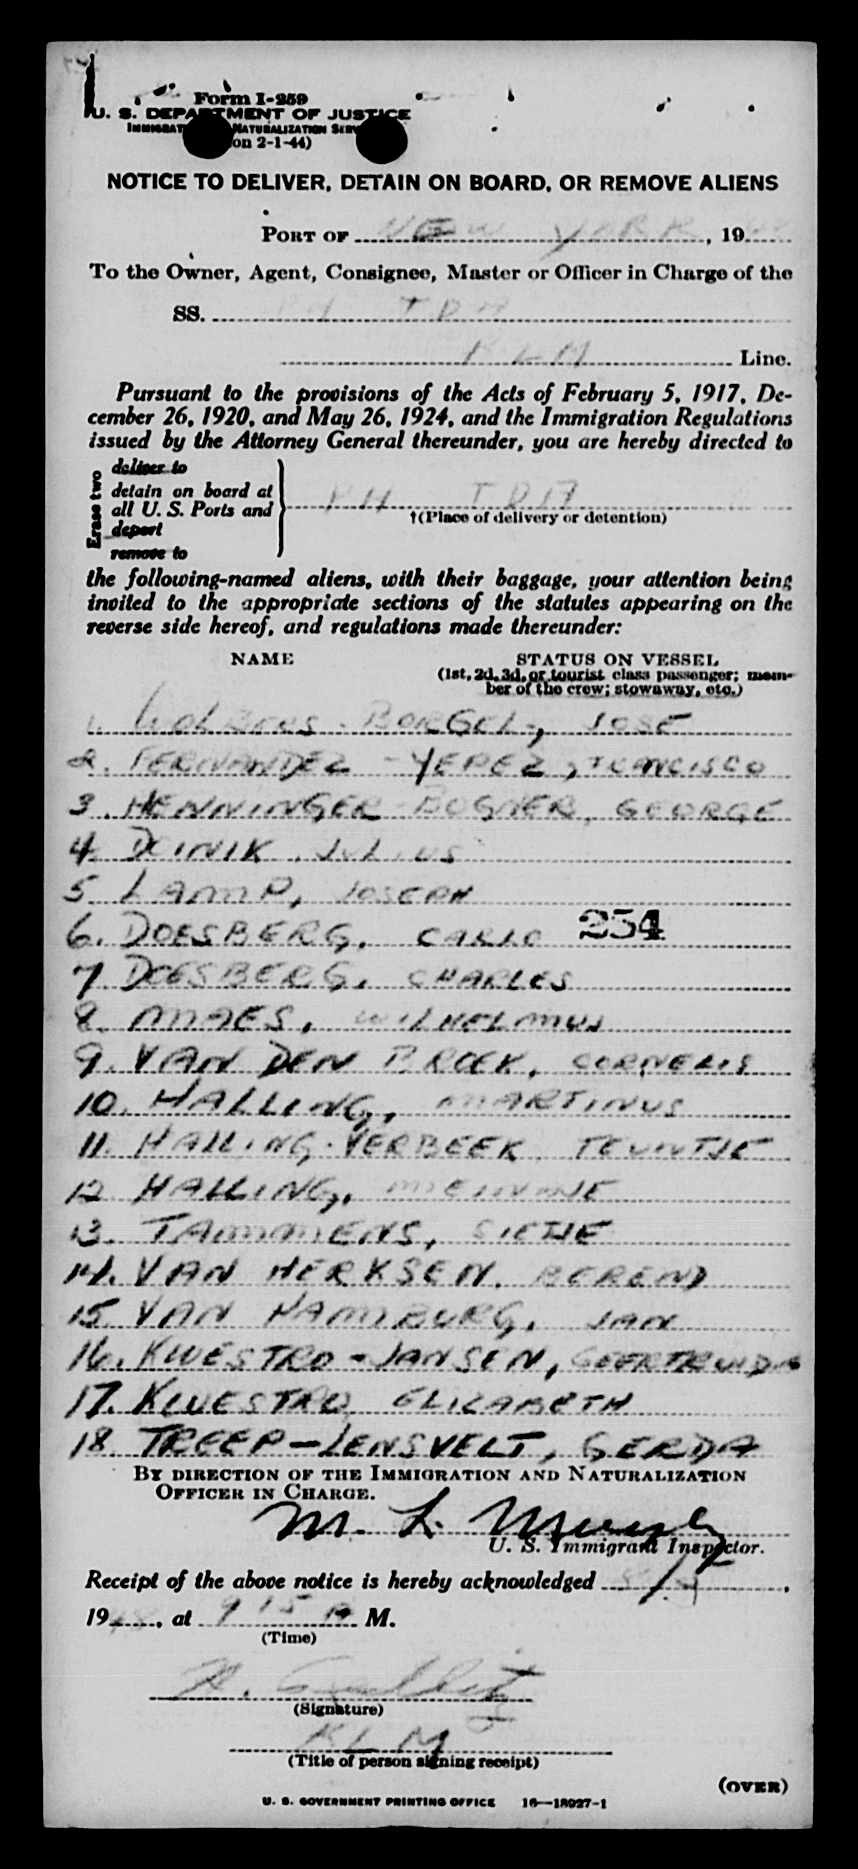 Form I-259
U. S. DEPARTMENT OF JUSTICE
IMMIGRATION NATURALIZATION SERVICE
on 2-1-44)
NOTICE TO DELIVER, DETAIN ON BOARD, OR REMOVE ALIENS
PORT OF NEW YORK, 19
To the Owner, Agent, Consignee, Master or Officer in Charge of the
SS. PH TDA
KLM Line.
Pursuant to the provisions of the Acts of February 5, 1917, De-
cember 26, 1920, and May 26, 1924, and the Immigration Regulations
issued by the Attorney General thereunder, you are hereby directed to
Erase two
deliver to
detain on board at
all U. S. Ports and
deport
remove to
PH TDA
†(Place of delivery or detention)
the following-named aliens, with their baggage, your attention being
invited to the appropriate sections of the statutes appearing on the
reverse side hereof, and regulations made thereunder:
NAME STATUS ON VESSEL
(1st, 2d, 3d, or tourist class passenger; mem-
ber of the crew; stowaway, etc.)
1. BORGEL, JOSE
2. FERNANDEZ - YEPEZ, FRANCISCO
3. HENNINGER - BOGNER, GEORGE
4. DOINIK, JULIUS
5 LAMP, JOSEPH
6. DOESBERG, CARLO 254
7 DOESBERG, CHARLES
8. MAES, WILHELMUS
9. VAN DEN BROEK, CORNELIS
10. HALLING, MARTINUS
11. HALLING-VERBEEK TEUNTJE
12 HALLING,
13. TAMMENS, SIETJE
14. VAN HERKSEN, BEREND
15 VAN HAMBURG, JAN
16. KWESTRO-JANSEN, GEERTRUIDA
17. KWESTRO, ELIZABETH
18. TREEP-LENSVELT, GERDA
BY DIRECTION OF THE IMMIGRATION AND NATURALIZATION
OFFICER IN CHARGE.
M. L. Murphy
U. S. Immigrant Inspector.
Receipt of the above notice is hereby acknowledged 8/9,
1948, at 9 15 A M.
(Time)
(Signature)
KLM
(Title of person signing receipt)
(OVER)
U. S. GOVERNMENT PRINTING OFFICE 16—18927-1